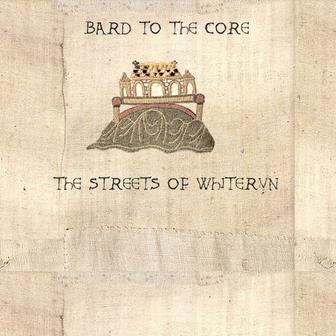 BARD TO THE CORE
THE STREETS OF WHITERUN